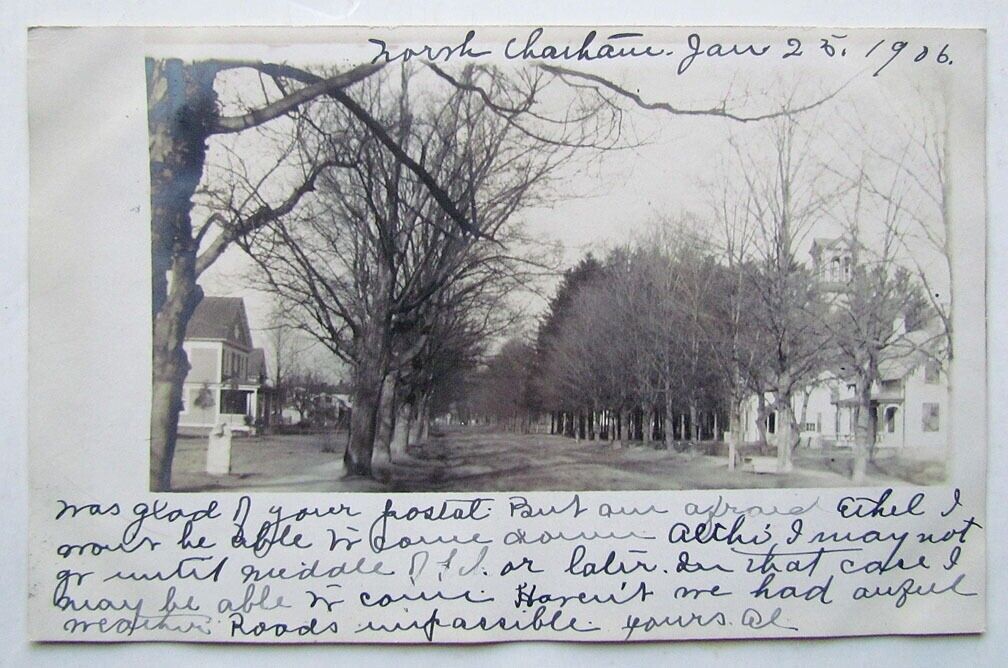 North Chatham. Jan 25. 1906.
was glad of your postal. But am afraid Ethel I
wont be able to come down Altho' I may not
go until middle of F. or later. In that case I
may be able to come. Haven't we had awful
weather. Roads impassible. yours. Al